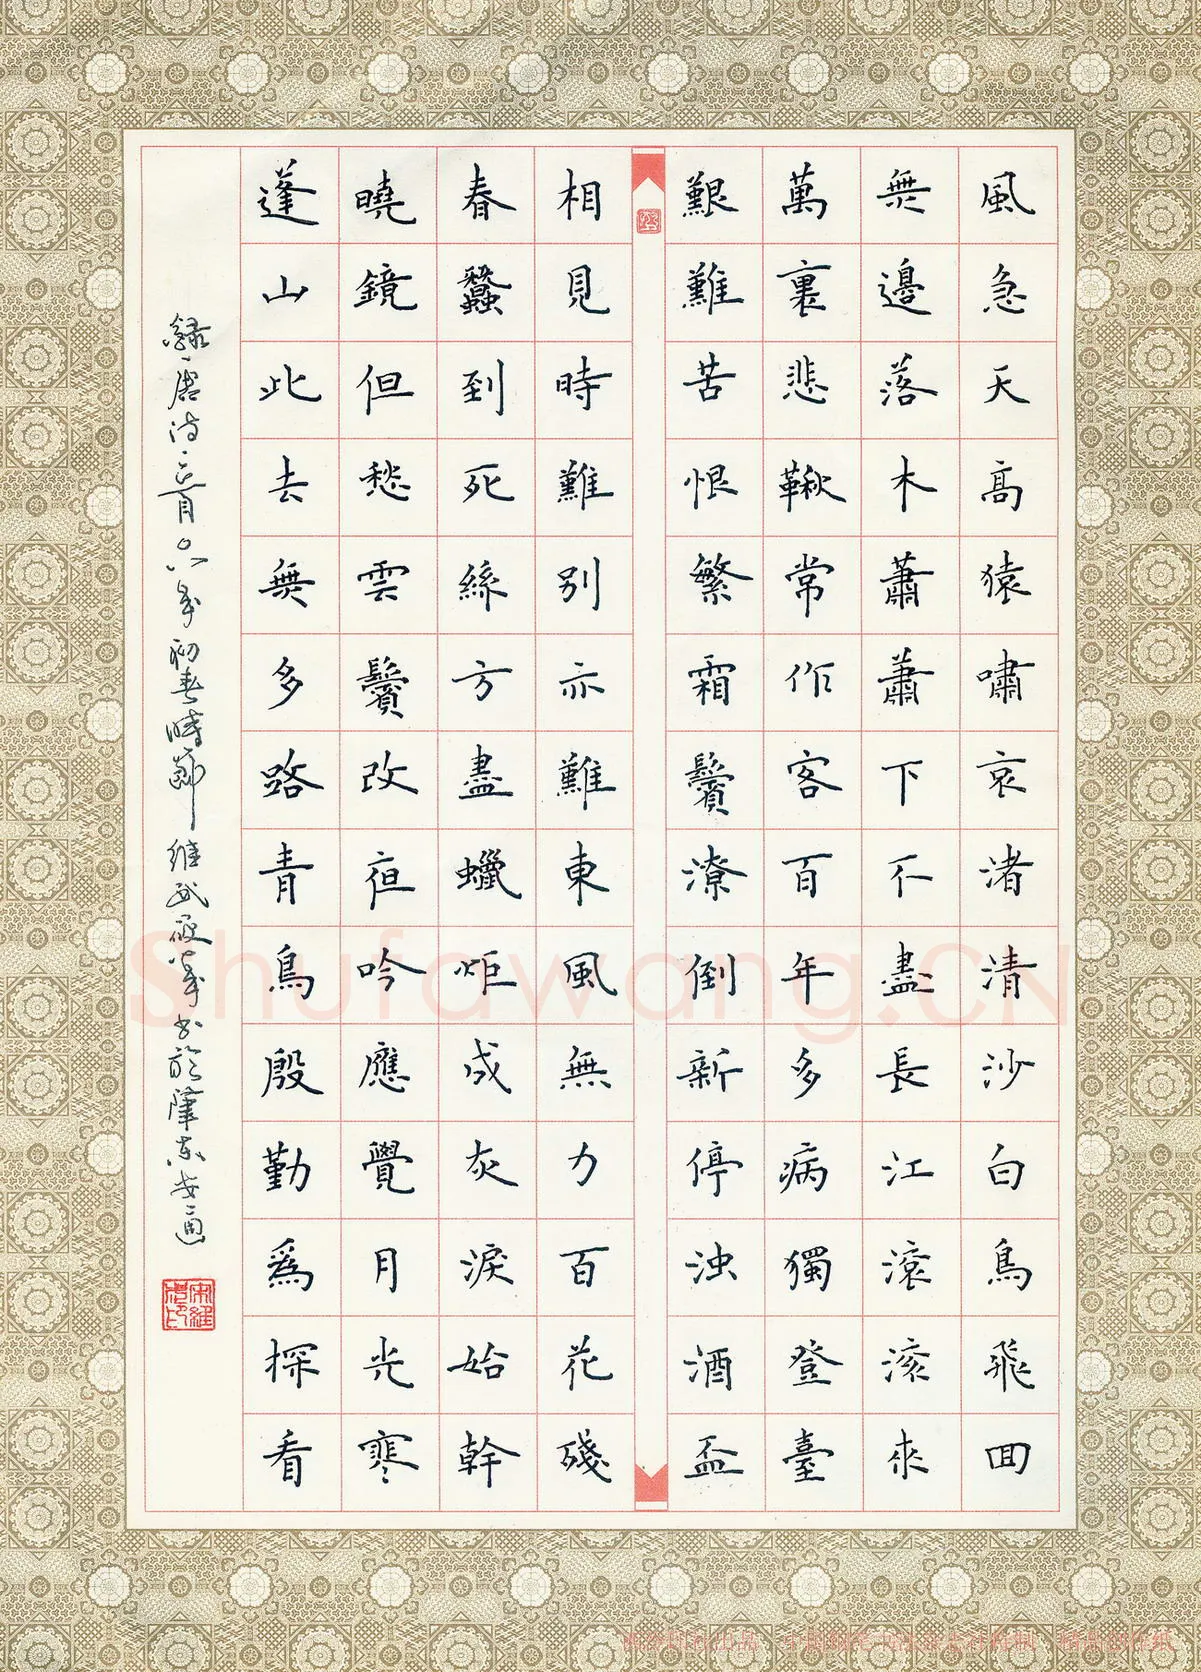 風急天高猿嘯哀渚清沙白鳥飛回
無邊落木蕭蕭下不盡長江滾滾來
萬裏悲鞦常作客百年多病獨登臺
艱難苦恨繁霜鬢潦倒新停浊酒盃
相見時難別亦難東風無力百花殘
春蠶到死絲方盡蠟炬成灰淚始幹
曉鏡但愁雲鬢改夜吟應覺月光寒
蓬山此去無多路青鳥殷勤爲探看
錄唐詩二首〇八年初春時節維武硬筆書於肇東安通
Shufawang.CN